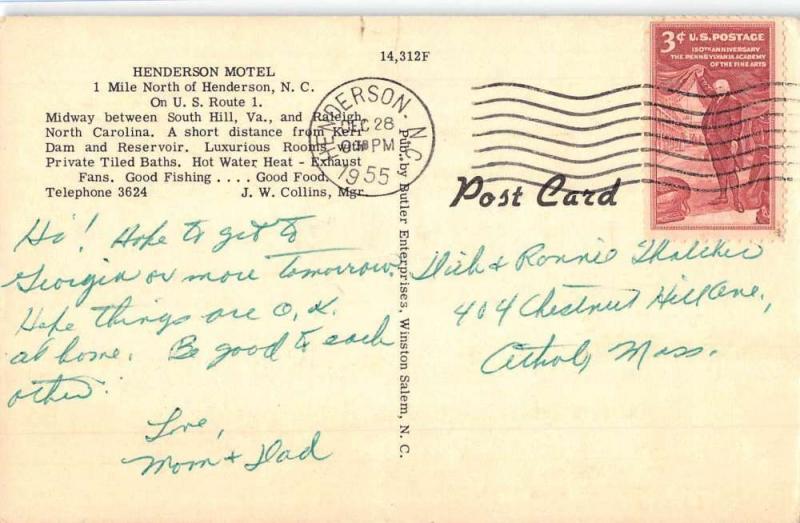 14,312F
HENDERSON MOTEL
1 Mile North of Henderson, N. C.
On U. S. Route 1.
Midway between South Hill, Va., and Raleigh,
North Carolina. A short distance from Kerr
Dam and Reservoir. Luxurious Rooms with
Private Tiled Baths. Hot Water Heat - Exhaust
Fans. Good Fishing . . . . Good Food.
Telephone 3624 J. W. Collins, Mgr.
HENDERSON. N.C.
DEC 28
PM
1955
3¢ U.S. POSTAGE
150TH ANNIVERSARY
THE PENNSYLVANIA ACADEMY
OF THE FINE ARTS
Post Card
Pub. by Butler Enterprises, Winston Salem, N. C.
Hi! Hope to get to
Georgia or more tomorrow.
Hope things are O.K.
at home. Be good to each
other.
Love,
Mom + Dad
Dick + Ronnie Thatcher
404 Chestnut Hill Ave,
Athol, Mass.